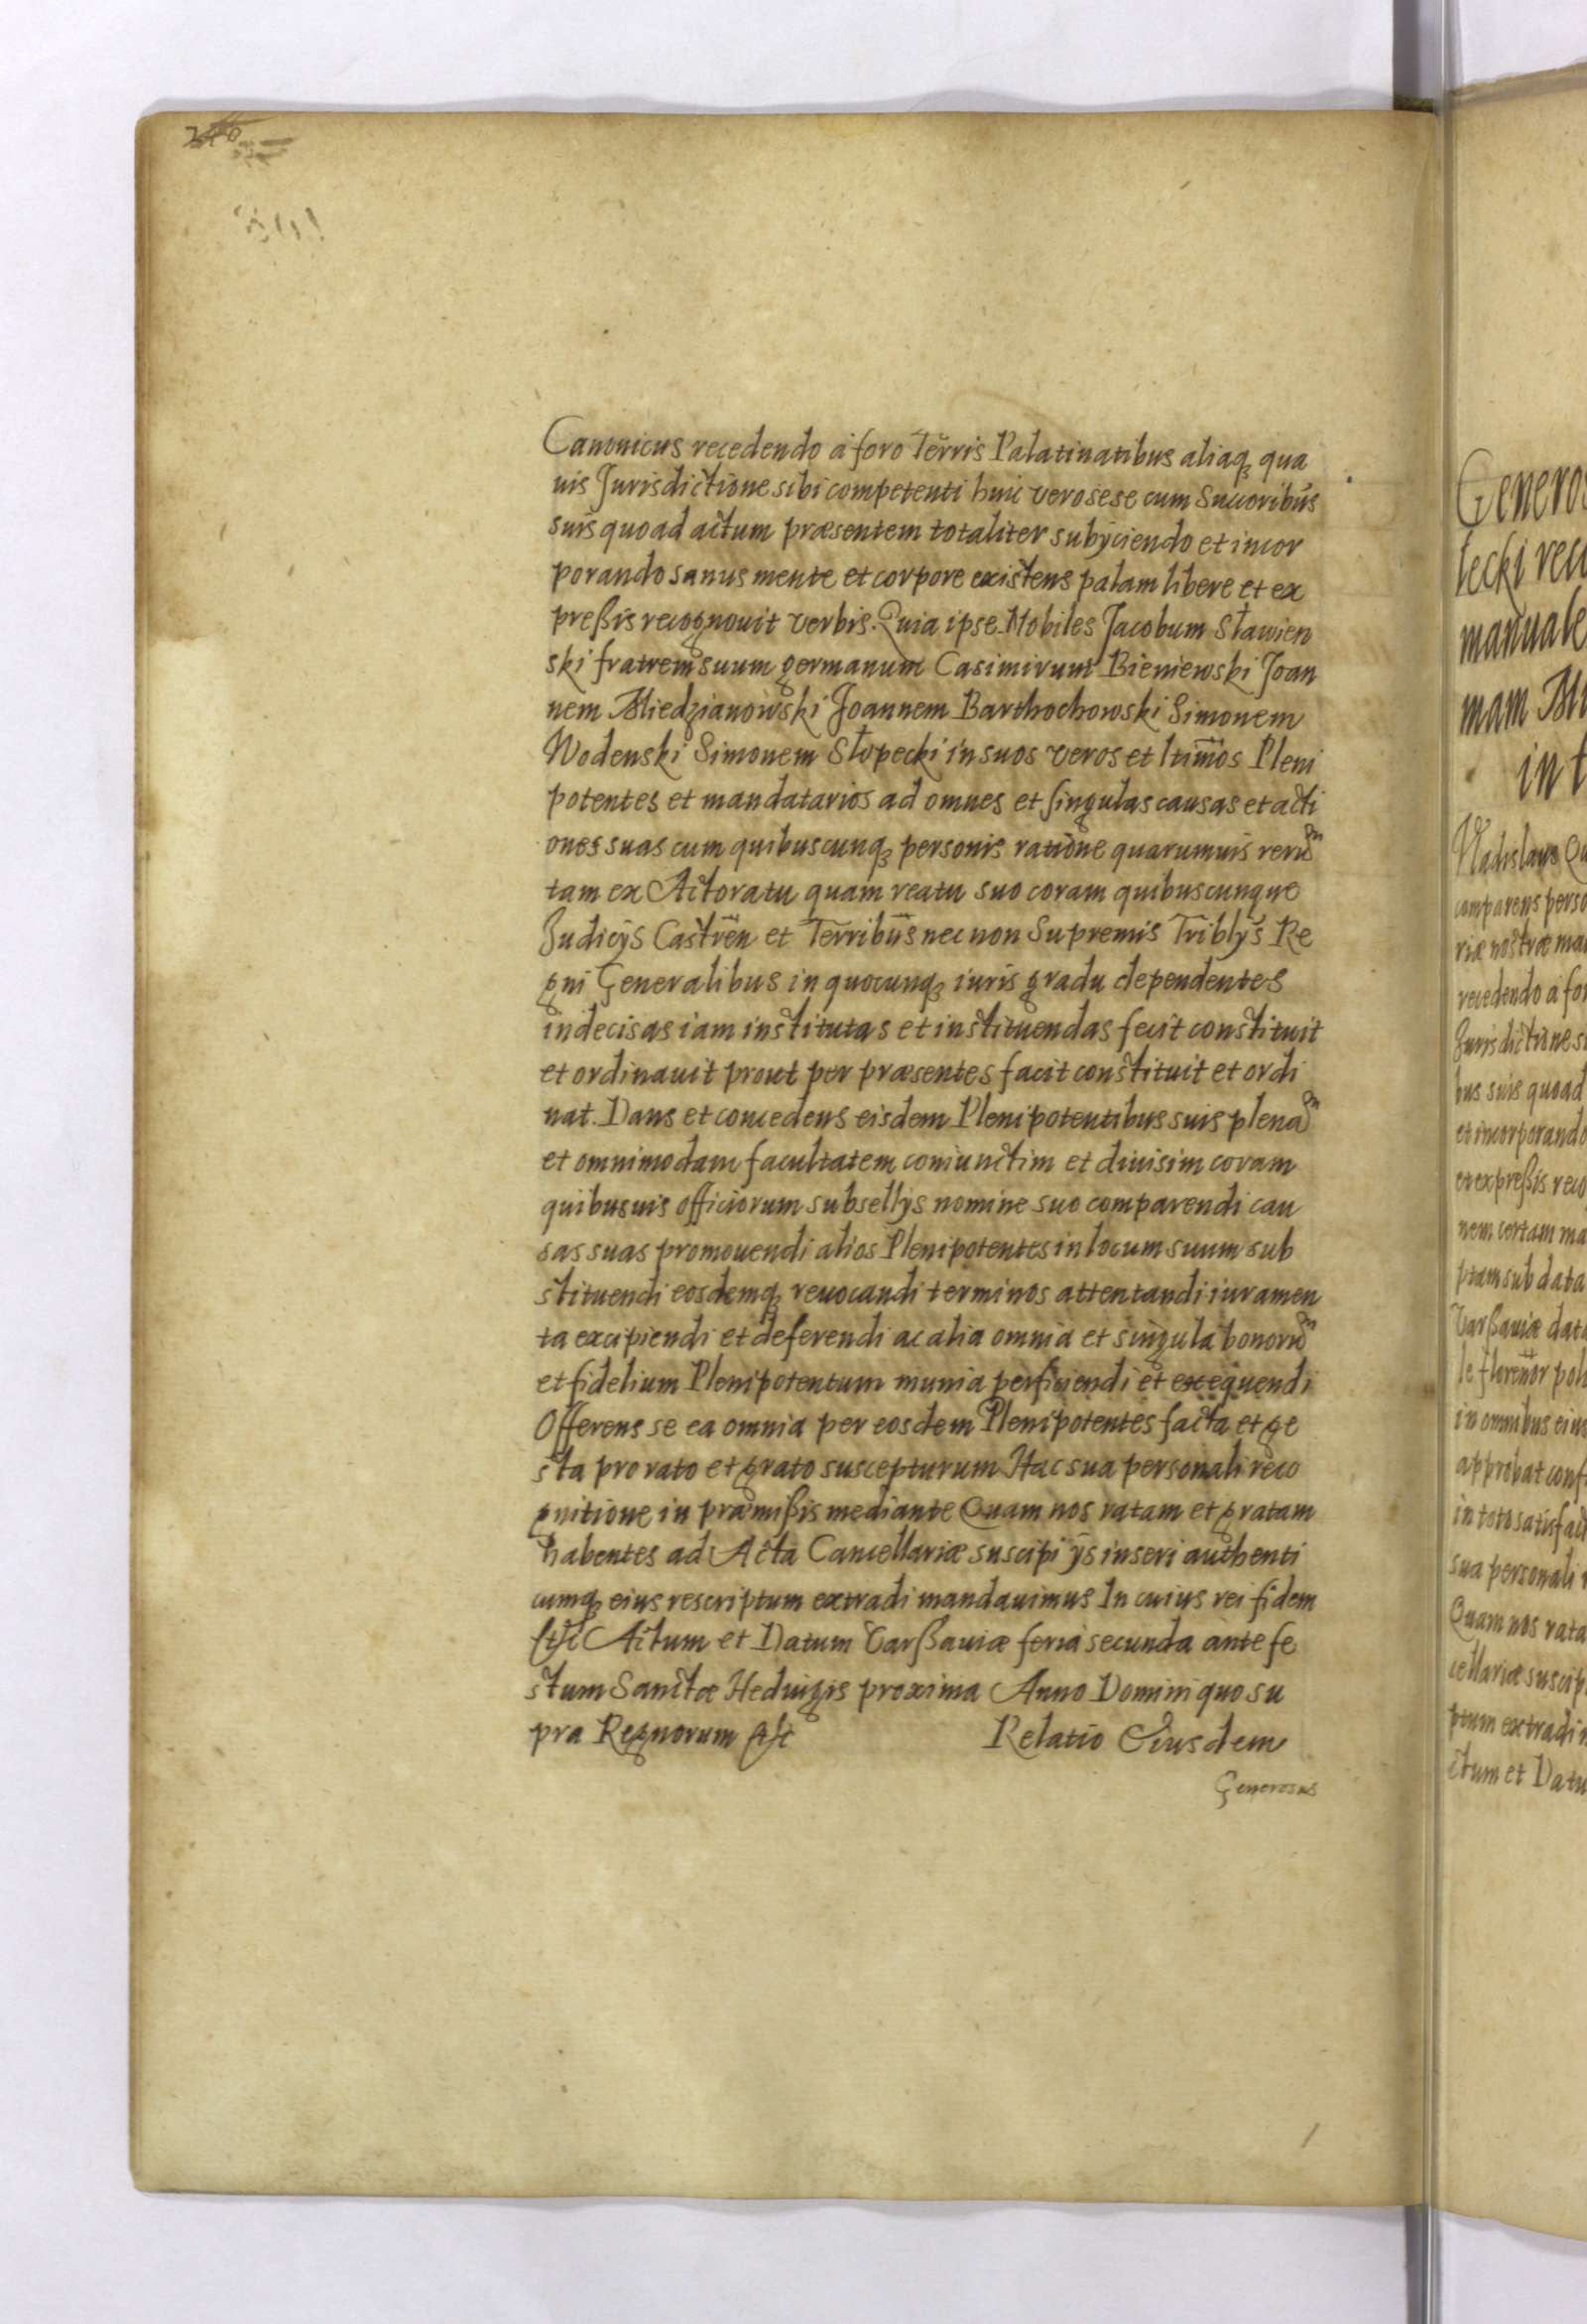 Canonicus recedendo a foro Terris Palatinatibus aliaq; qua
uis Jurisdictione sibi competenti huic vero sese cum Succoribus
suis quoad actum præsentem totaliter subijciendo et incor
porando sanus mente et corpore existens palam libere et ex
preßis recognouit verbis. Quia ipse Nobiles Jacobum Stawien
ski fratrem suum germanum Casimirum Bieniewski Joan
nem Miedzianowski Joannem Barthochowski Simonem
Wodenski Simonem Słopecki in suos veros et ltimos Pleni
potentes et mandatarios ad omnes et singulas causas et acti
ones suas cum quibuscunq; personis ratione quarumuis rerum
tam ex Actoratu quam reatu suo coram quibuscunque
Judicijs Castren et Terribus nec non Supremis Triblijs Re
gni Generalibus in quocunq; iuris gradu dependentes
indecisas iam institutas et instituendas fecit constituit
et ordinauit prout per præsentes facit constituit et ordi
nat. Dans et concedens eisdem Plenipotentibus suis plenam
et omnimodam facultatem coniunctim et diuisim coram
quibusuis officiorum subsellijs nomine suo comparendi cau
sas suas promouendi alios Plenipotentes in locum suum sub
stituendi eosdemq; reuocandi terminos attentandi iuramen
ta excipiendi et deferendi ac alia omnia et singula bonorum
et fidelium Plenipotentum munia perficiendi et exequendi
Offerens se ea omnia per eosdem Plenipotentes facta et ge
sta pro rato et grato suscepturum Hac sua personali reco
gnitione in præmißis mediante Quam nos ratam et gratam
habentes ad Acta Cancellariæ suscipi ijs inseri authenti
cumq; eius rescriptum extradi mandauimus In cuius rei fidem
Actum et Datum Varßauiæ feria secunda ante fe
stum Sanctæ Heduigis proxima Anno Domini quo su
pra Regnorum Relatio Eiusdem
Generosus
Generos
lecki rec
manuale
mam Mi
in t
Vladislaus Qu
comparens perso
riæ nostræ ma
recedendo a for
Jurisdictione s
bus suis quoad
et incorporando
et expreßis reco
nem certam ma
ptam sub data
Varßauiæ dat
le florenor pol
in omnibus eius
approbat conf
in toto satisfact
sua personali r
Quam nos rata
cellariæ suscip
ptum extradi m
ctum et Datu